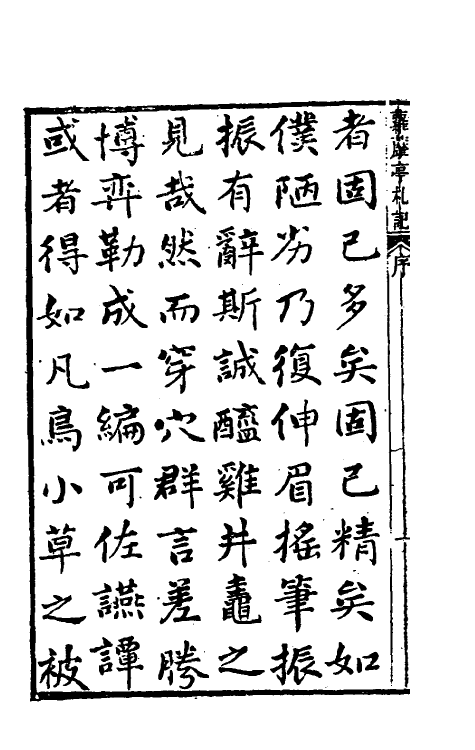 者固已多矣固已精矣如
僕陋劣乃復伸眉搖筆振
振有辭斯誠醯雞井鼃之
見哉然而穿穴群言差勝
博弈勒成一編可佐讌譚
或者得如凡鳥小草之被
亭札記
序